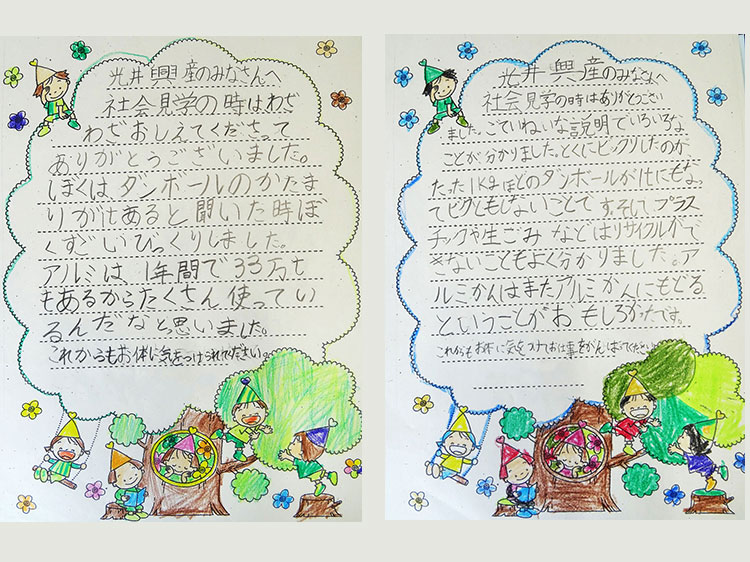 光井興産のみなさんへ
社会見学の時はわざ
わざおしえてくださって
ありがとうございました。
ぼくはダンボールのかたま
りが1tあると聞いた時ぼ
くすごいびっくりしました。
アルミは1年間で33万t
もあるからたくさん使ってい
るんだなと思いました。
これからもお体に気をつけられてください。
光井興産のみなさんへ
社会見学の時はありがとうござい
ました。ごていねいな説明でいろいろな
ことが分かりました。とくにビックリしたのが
たった1kgほどのダンボールが1tにもなっ
てビクともしないことです。そしてプラス
チックや生ごみなどはリサイクルがで
きないこともよく分かりました。ア
ルミかんはまたアルミかんにもどる
ということがおもしろかたです。
これからもお体に気をつけてお仕事をがんばってください。